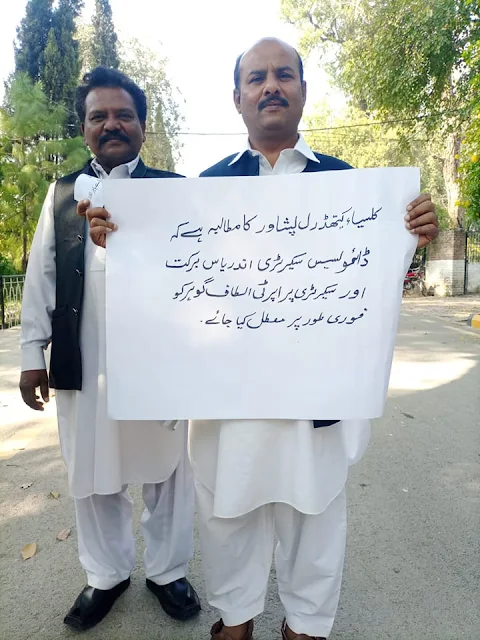 کلیساء کیتھڈرل پشاور کا مطالبہ ہے کہ
ڈائیوسیس سیکرٹری اندریاس برکت
اور سیکرٹری پراپرٹی الطاف گوہر کو
فوری طور پر معطل کیا جائے۔